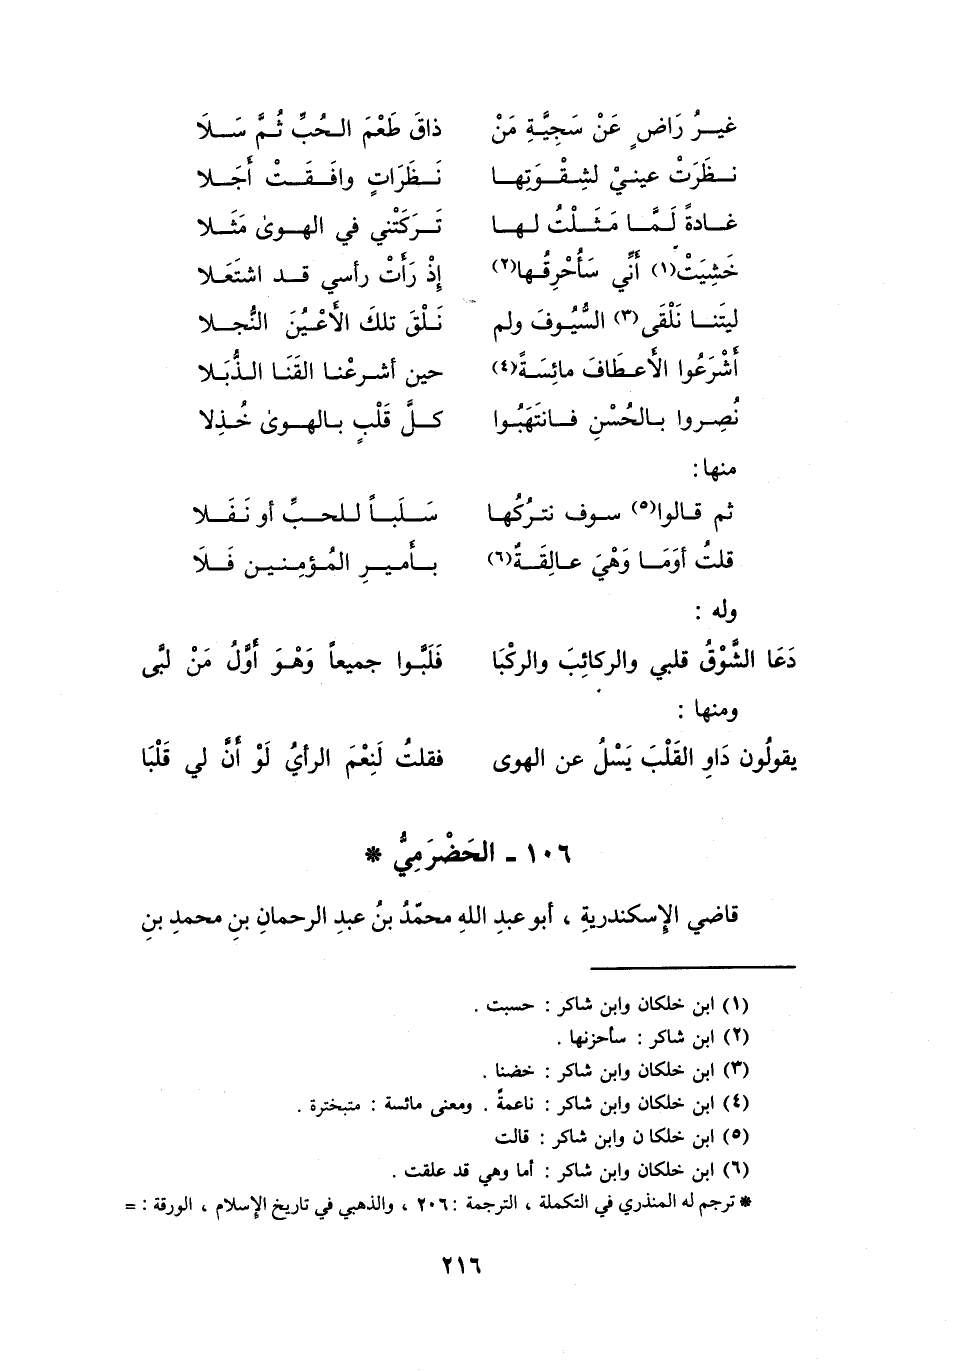 غيرُ رَاضٍ عَنْ سَجِيَّةِ مَنْ ذاقَ طَعْمَ الحُبِّ ثُمَّ سَلَا
نظَرَتْ عينيْ لشِقْوَتِها نَظَرَاتٍ وافَقَتْ أَجَلا
غادةً لَمَّا مَثَلْتُ لها تَرَكَتْني في الهوىٰ مَثَلا
خَشِيَتْ(١) أَنِّي سَأُحْرِقُها(٢) إِذْ رَأَتْ رأسي قد اشتَعَلا
ليتَنا نَلْقَى(٣) السُّيُوفَ ولم نَلْقَ تلكَ الأَعْيُنَ النُّجلا
أَشْرَعُوا الأعطَافَ مائِسَةً(٤) حين أشرعْنا القَنَا الذُّبَلا
نُصِروا بالحُسْنِ فانتَهَبُوا كلَّ قَلْبٍ بالهوىٰ خُذِلا
منها:
ثم قالوا(٥) سوف نترُكُها سَلَباً للحبِّ أو نَفَلا
قلتُ أوَمَا وَهْيَ عالِقَةٌ(٦) بأَميرِ المُؤمِنين فَلَا
وله :
دَعَا الشَّوْقُ قلبي والركائِبَ والركْبَا فَلَبَّوا جميعاً وَهْوَ أَوَّلُ مَنْ لبَّى
ومنها :
يقولُون دَاوِ القَلْبَ يَسْلُ عن الهوى فقلتُ لَنِعْمَ الرأيُ لَوْ أَنَّ لي قَلْبَا
١٠٦ - الحَضْرَمِيُّ *
قاضي الإِسكندريةِ ، أبو عبدِ اللهِ محمّدُ بنُ عبدِ الرحمانِ بنِ محمدِ بنِ
(١) ابن خلكان وابن شاكر : حسبت .
(٢) ابن شاكر : سأحزنها .
(٣) ابن خلكان وابن شاكر : خضنا .
(٤) ابن خلكان وابن شاكر : ناعمةً . ومعنى مائسة : متبخترة .
(٥) ابن خلكا ن وابن شاكر : قالت
(٦) ابن خلكان وابن شاكر : أما وهي قد علقت .
* ترجم له المنذري في التكملة ، الترجمة :٢٠٦ ، والذهبي في تاريخ الإِسلام ، الورقة : =
٢١٦